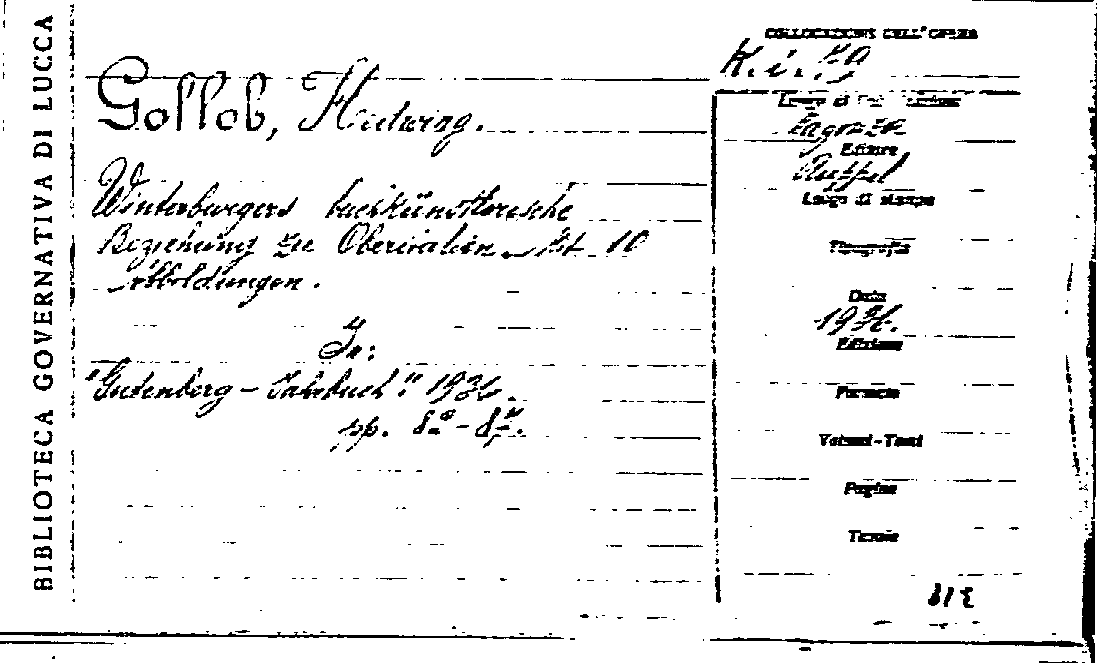 BIBLIOTECA GOVERNATIVA DI LUCCA
COLLOCAZIONE DELL'OPERA
K. i. 79
Gollob, Hedwig.
Winterburgers buchkünstlerische
Beziehung zu Oberitalien. Mit 10
Abbildungen.
In:
"Gutenberg - Jahrbuch". 1936.
pp.
Luogo di
Editore
Ruppel
Luogo di stampa
Tipografia
Data
1936.
Edizione
Formato
Volumi-Tomi
Pagine
Tavole